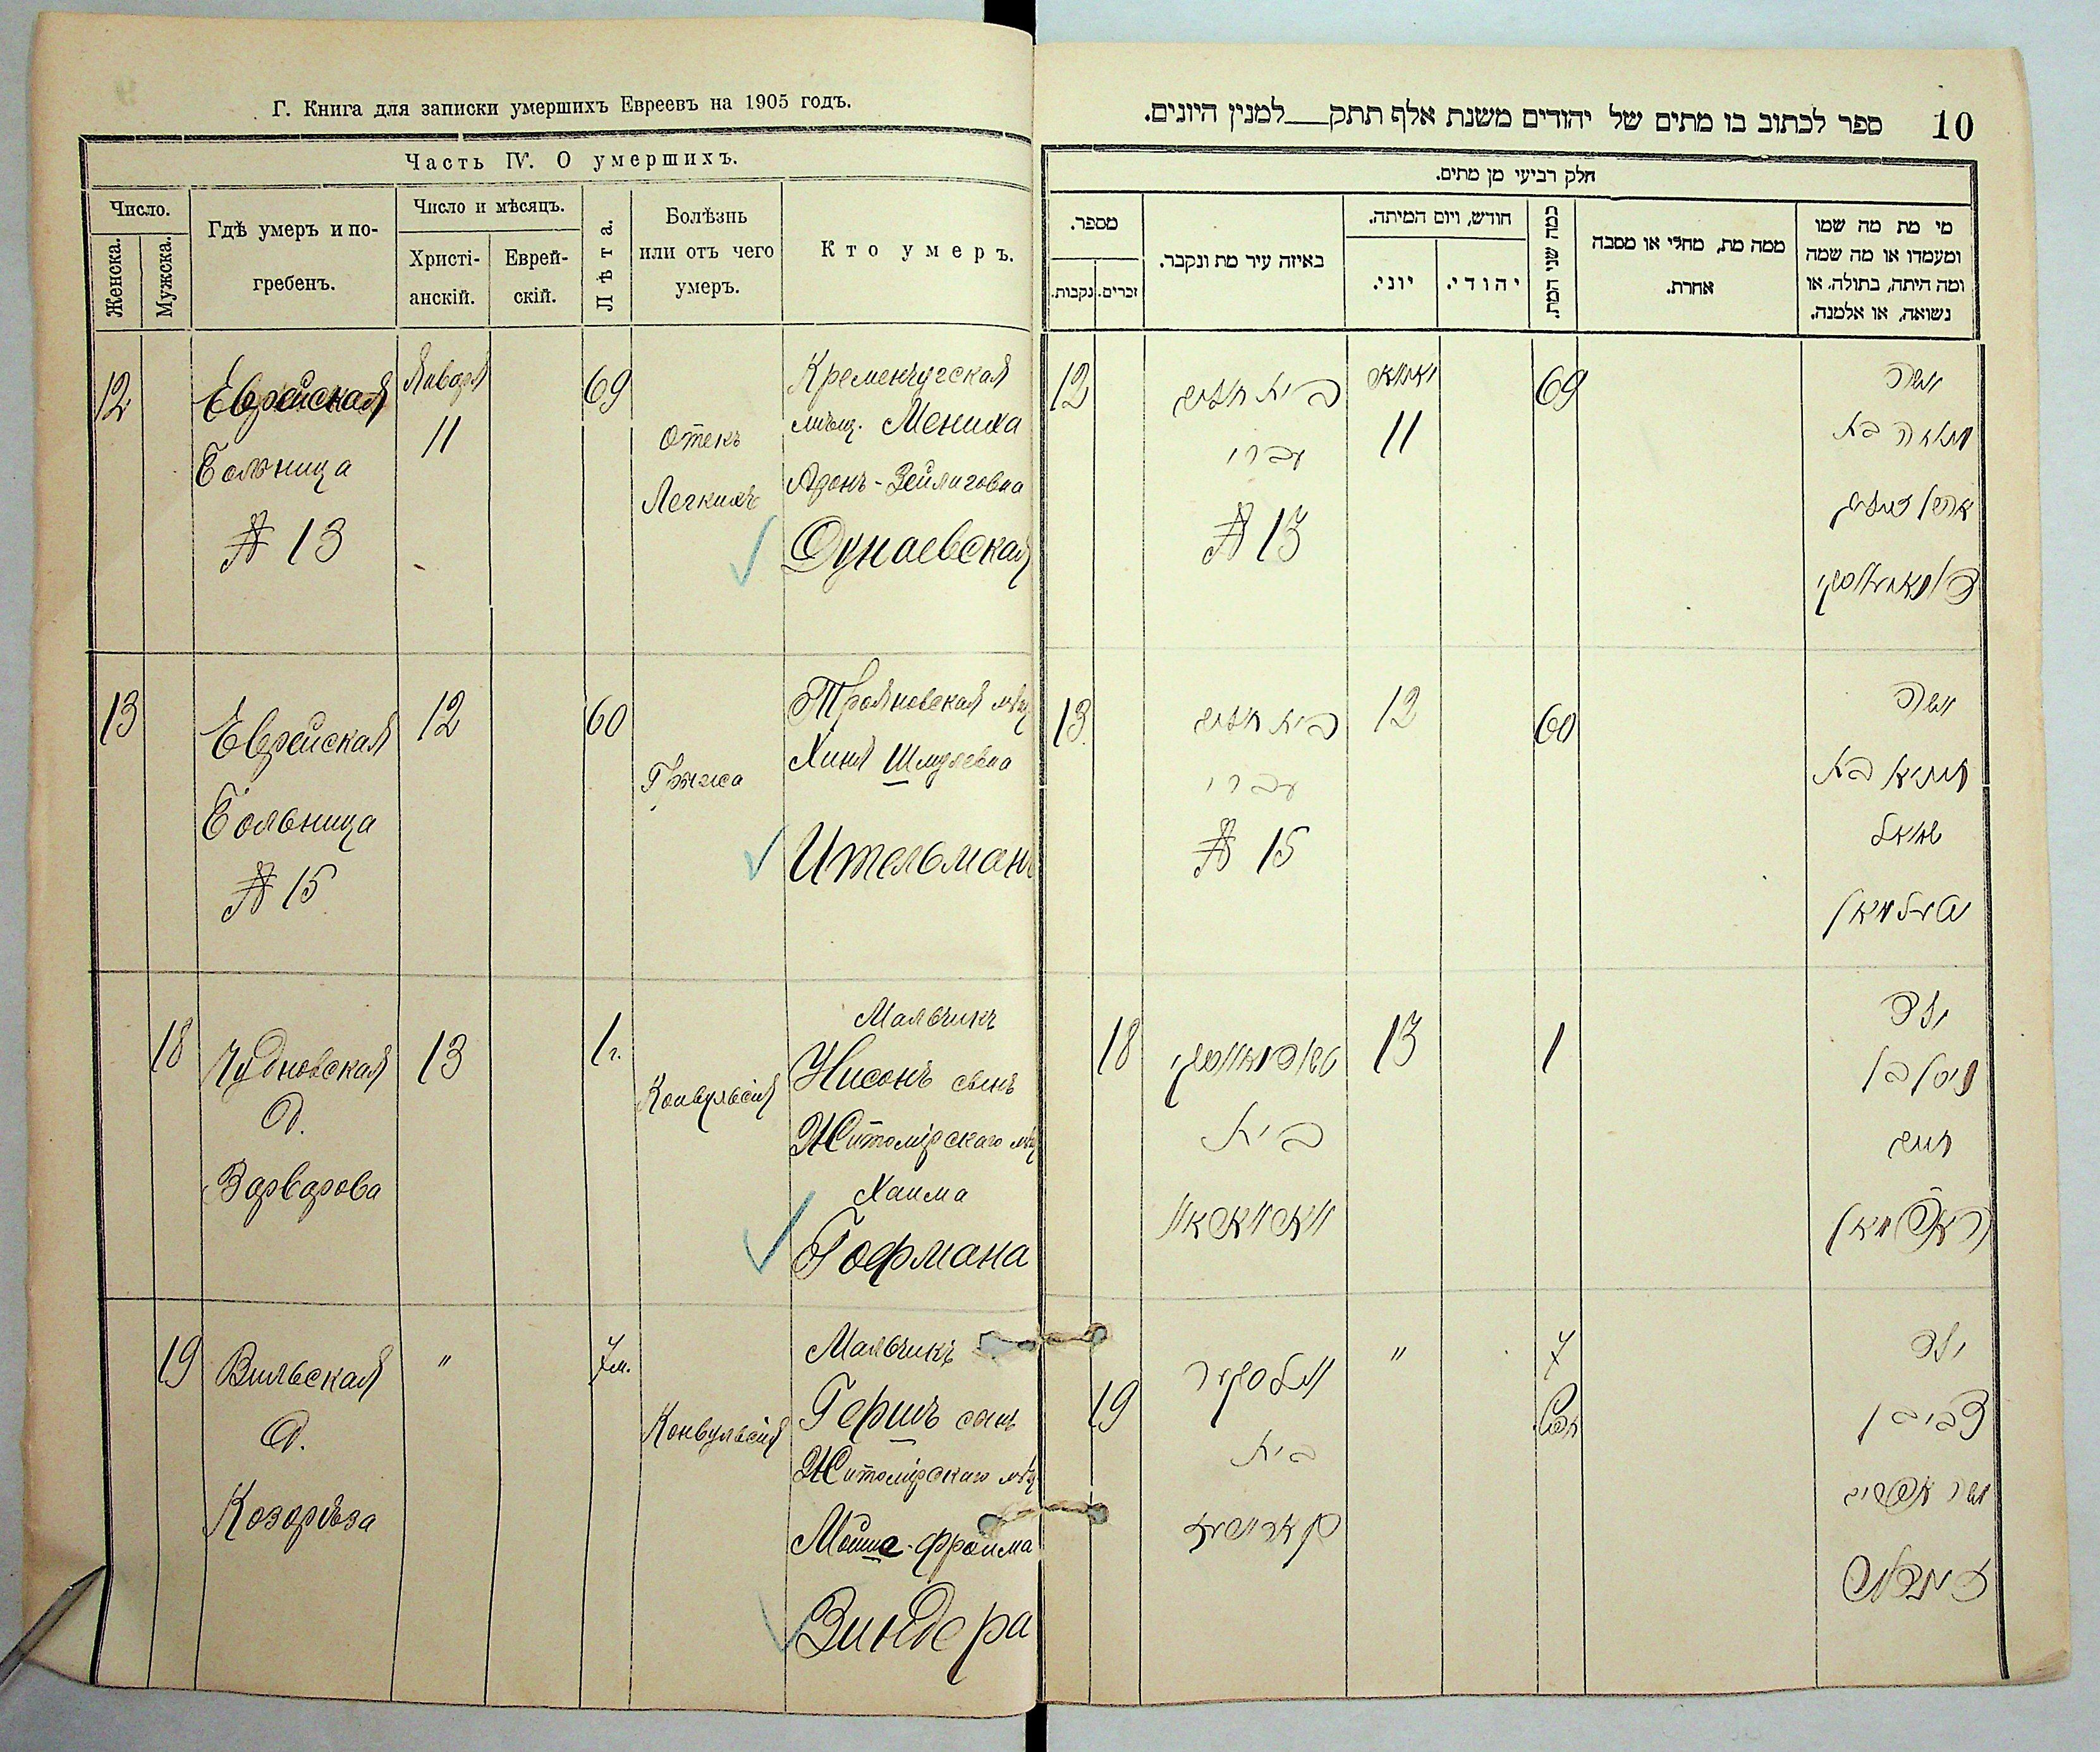 Г. Книга для записки умершихъ Евреевъ на 1905 годъ.
Часть IV. О умершихъ.
Число.
Женска.
Мужска.
Гдѣ умеръ и по-
гребенъ.
Число и мѣсяцъ.
Христі-
анскій.
Еврей-
скій.
Лѣта.
Болѣзнь
или отъ чего
умеръ.
Кто умеръ.
12
Еврейская
Больница
№ 13
Января
11
69
Отекъ
Легкихъ
Кременчугская
мѣщ. Мениха
Аронъ-Зейлиговна
Дунаевская
13
Еврейская
Больница
№ 15
12
60
Грыжа
Трояновская мѣщ
Хиня Шмулевна
Ительман
18
Чудновская
д.
Варварова
13
1 г.
Конвульсія
Мальчикъ
Нисонъ сынъ
Житомірскаго мѣщ
Хаима
Гофмана
19
Вильская
д.
Козорѣза
"
7 м.
Конвульсія
Мальчикъ
Гершъ сынъ
Житомірскаго мѣщ
Мошка-Фроима
Виндера
10
ספר לכתוב בו מתים של יהודים משנת אלף תתק__למנין היונים.
חלק רביעי מן מתים.
מספר.
נקבות.
זכרים.
באיזה עיר מת ונקבר.
חודש, ויום המיתה.
יוני.
יהודי.
כמה שני המת.
ממה מת, מחלי או מסבה
אחרת.
מי מת מה שמו
ומעמדו או מה שמה
ומה היתה, בתולה או
נשואה, או אלמנה.
12
בית חולים
עברי
№ 13
11
69
אשה
בת
13
בית חולים
עברי
№ 15
12
60
אשה
בת
שמואל
18
בית
13
1
ילד
ניסן בן
חיים
האפמאן
19
בית
"
7
ילד
צבי בן
משה אפרים